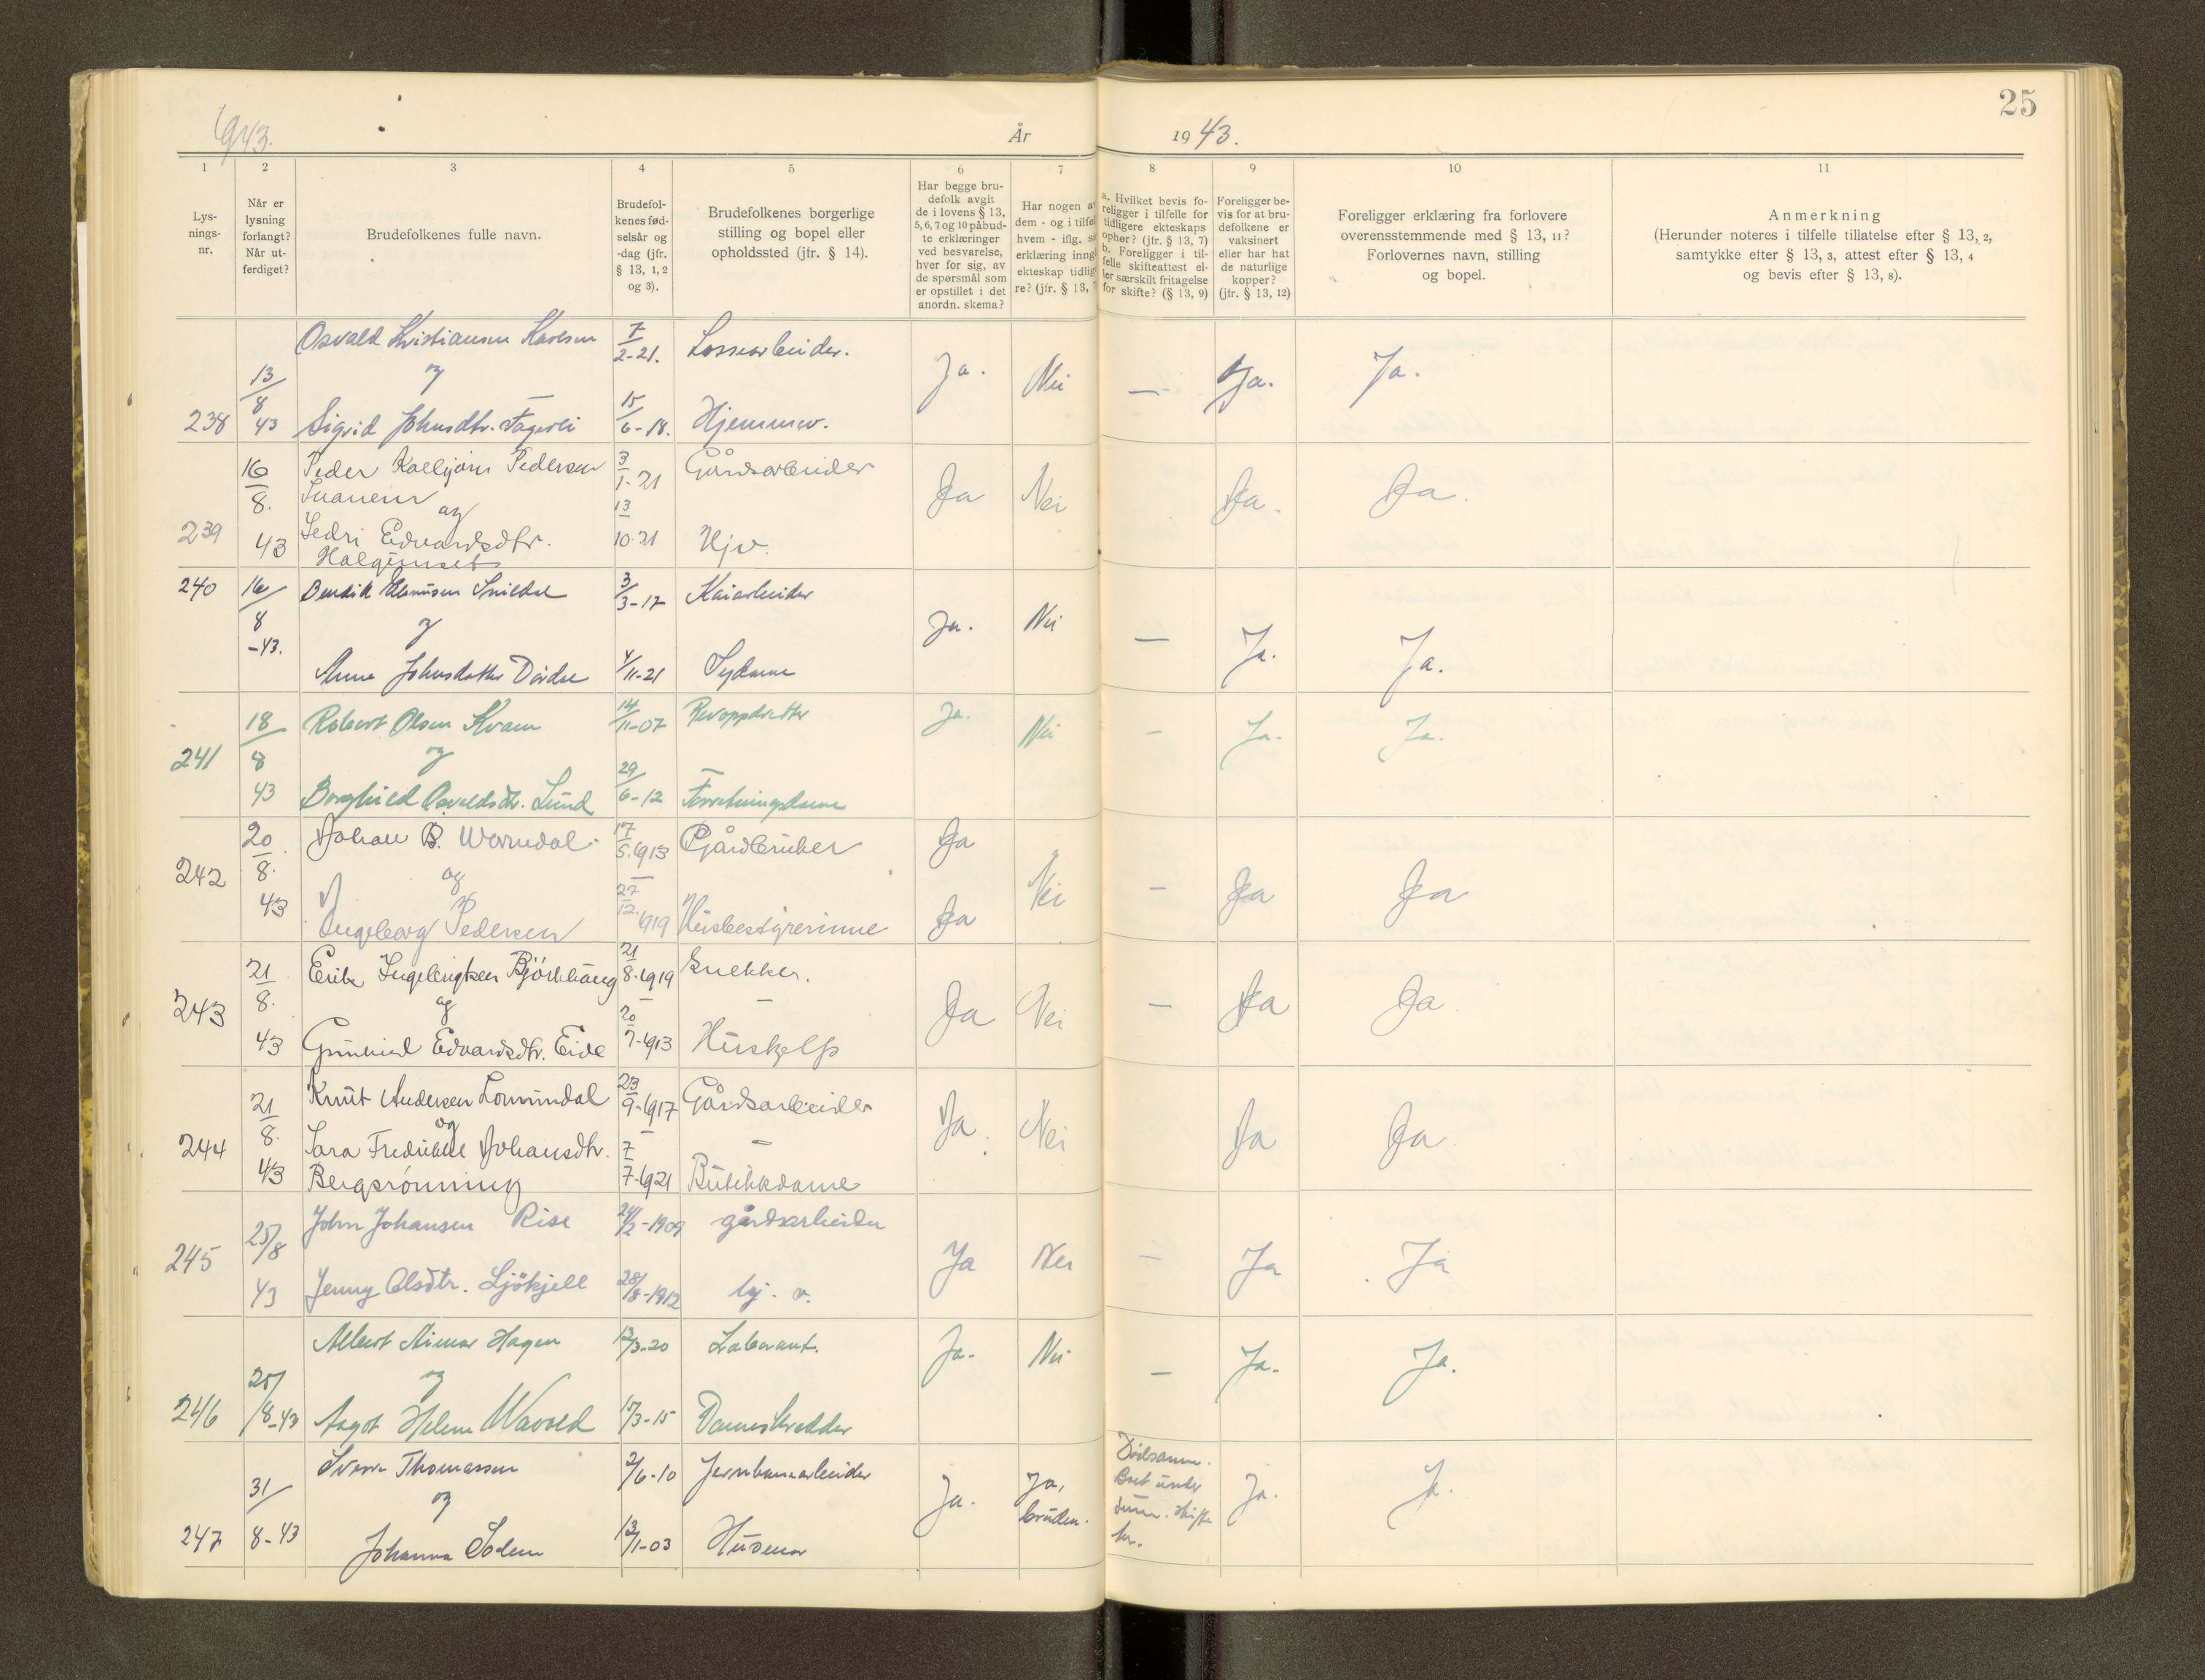 25
1943.
År
1943.
1
2
3
4
5
6
7
8
9
10
11
Lys-
nings-
nr.
Når er
lysning
forlangt?
Når ut-
ferdiget?
Brudefolkenes fulle navn.
Brudefol-
kenes fød-
selsår og
-dag (jfr.
§ 13, 1, 2
og 3).
Brudefolkenes borgerlige
stilling og bopel eller
opholdssted (jfr. § 14).
Har begge bru-
defolk avgit
de i lovens § 13,
5, 6, 7 og 10 påbud-
te erklæringer
ved besvarelse,
hver for sig, av
de spørsmål som
er opstillet i det
anordn. skema?
Har nogen a
dem - og i tilfel
hvem - iflg. s
erklæring inng
ekteskap tidlig
re? (jfr. § 13,
a. Hvilket bevis fo-
religger i tilfelle for
tidligere ekteskaps
ophør? (jfr. § 13, 7)
b. Foreligger i til-
felle skifteattest el-
ler særskilt fritagelse
for skifte? (§ 13, 9)
Foreligger be-
vis for at bru-
defolkene er
vaksinert
eller har hat
de naturlige
kopper?
(jfr. § 13, 12)
Foreligger erklæring fra forlovere
overensstemmende med § 13, 11?
Forlovernes navn, stilling
og bopel.
Anmerkning
(Herunder noteres i tilfelle tillatelse efter § 13, 2,
samtykke efter § 13, 3, attest efter § 13, 4
og bevis efter § 13, 8).
Osvald Kristiansen Karlsen 7/2-21. Lossearbeider.
13/8 og Ja. Nei — Ja. Ja.
238 43 Sigrid Johnsdtr. Fagerli 15/6-18. Hjemmev.
16/8. Peder Pedersen 3/1-21 Gårdsarbeider
og Ja Nei Ja. Ja.
239 43 Edvardsdtr. 13/10-21 Hjv.
240 16/8 3/3-17 Kaiarbeider
-43. og Ja. Nei — Ja. Ja.
Anna Johnsdatter 4/11-21 Sydame
18/8 Robert Olsen Kvam 14/11-07 Revoppdretter Ja. Nei - Ja. Ja.
241 og
43 Borghild Osvaldsdtr. Lund 29/6-12 Forretningsdame
20/8. Johan B. Werndal 17/5.1913 Gårdbruker Ja
242 og Nei - Ja Ja
43 Ingeborg Pedersen 27/12.1919 Husbestyrerinne Ja
21/8. Erik Ingebrigtsen Bjørkhaug 21/8.1919 Snekker.
243 og — Ja Nei — Ja Ja
43 Gunhild Edvardsdtr. Eide 20/7-1913 Hushjelp
21/8. Knut Andersen Lomundal 23/9-1917 Gårdsarbeider
244 og — Ja. Nei Ja Ja
Sara Fredrikke Johansdtr. 7/7-1921
43 Bergsrønning Butikkdame
25/8 John Johansen Rise 24/2-1909 gårdsarbeider
245 Ja Nei - Ja Ja
43 Jenny Olsdtr. Ljökjell 28/8-1912 hj. v.
Albert Aimar Hagen 12/3-20 Laborant. Ja. Nei
25/8-43 og — Ja. Ja.
246 Aagot Helene Wavold 15/3-15 Dameskredder
Sverre Thomassen 2/6-10 Jernbanearbeider
31/8-43 og Ja. Ja, bruden. Ja. Ja.
Boet under
247 Johanna Solem 13/1-03 Husmor